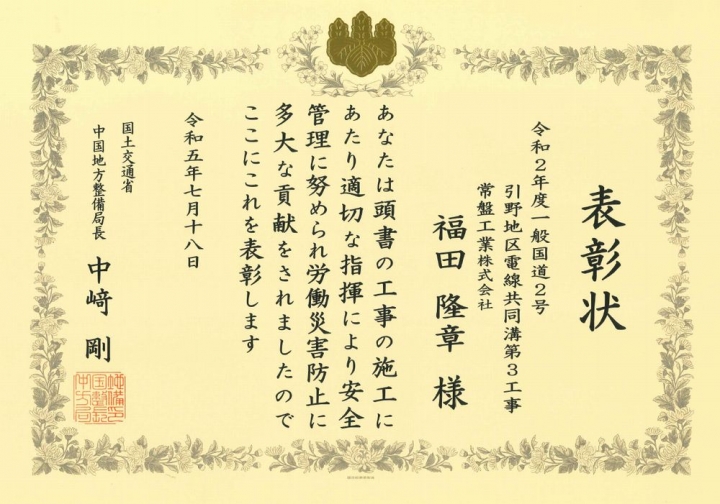 表彰状
令和2年度一般国道2号
引野地区電線共同溝第3工事
常盤工業株式会社
福田 隆章 様
あなたは頭書の工事の施工に
あたり適切な指揮により安全
管理に努められ労働災害防止に
多大な貢献をされましたので
ここにこれを表彰します
令和五年七月十八日
国土交通省
中国地方整備局長
中﨑 剛